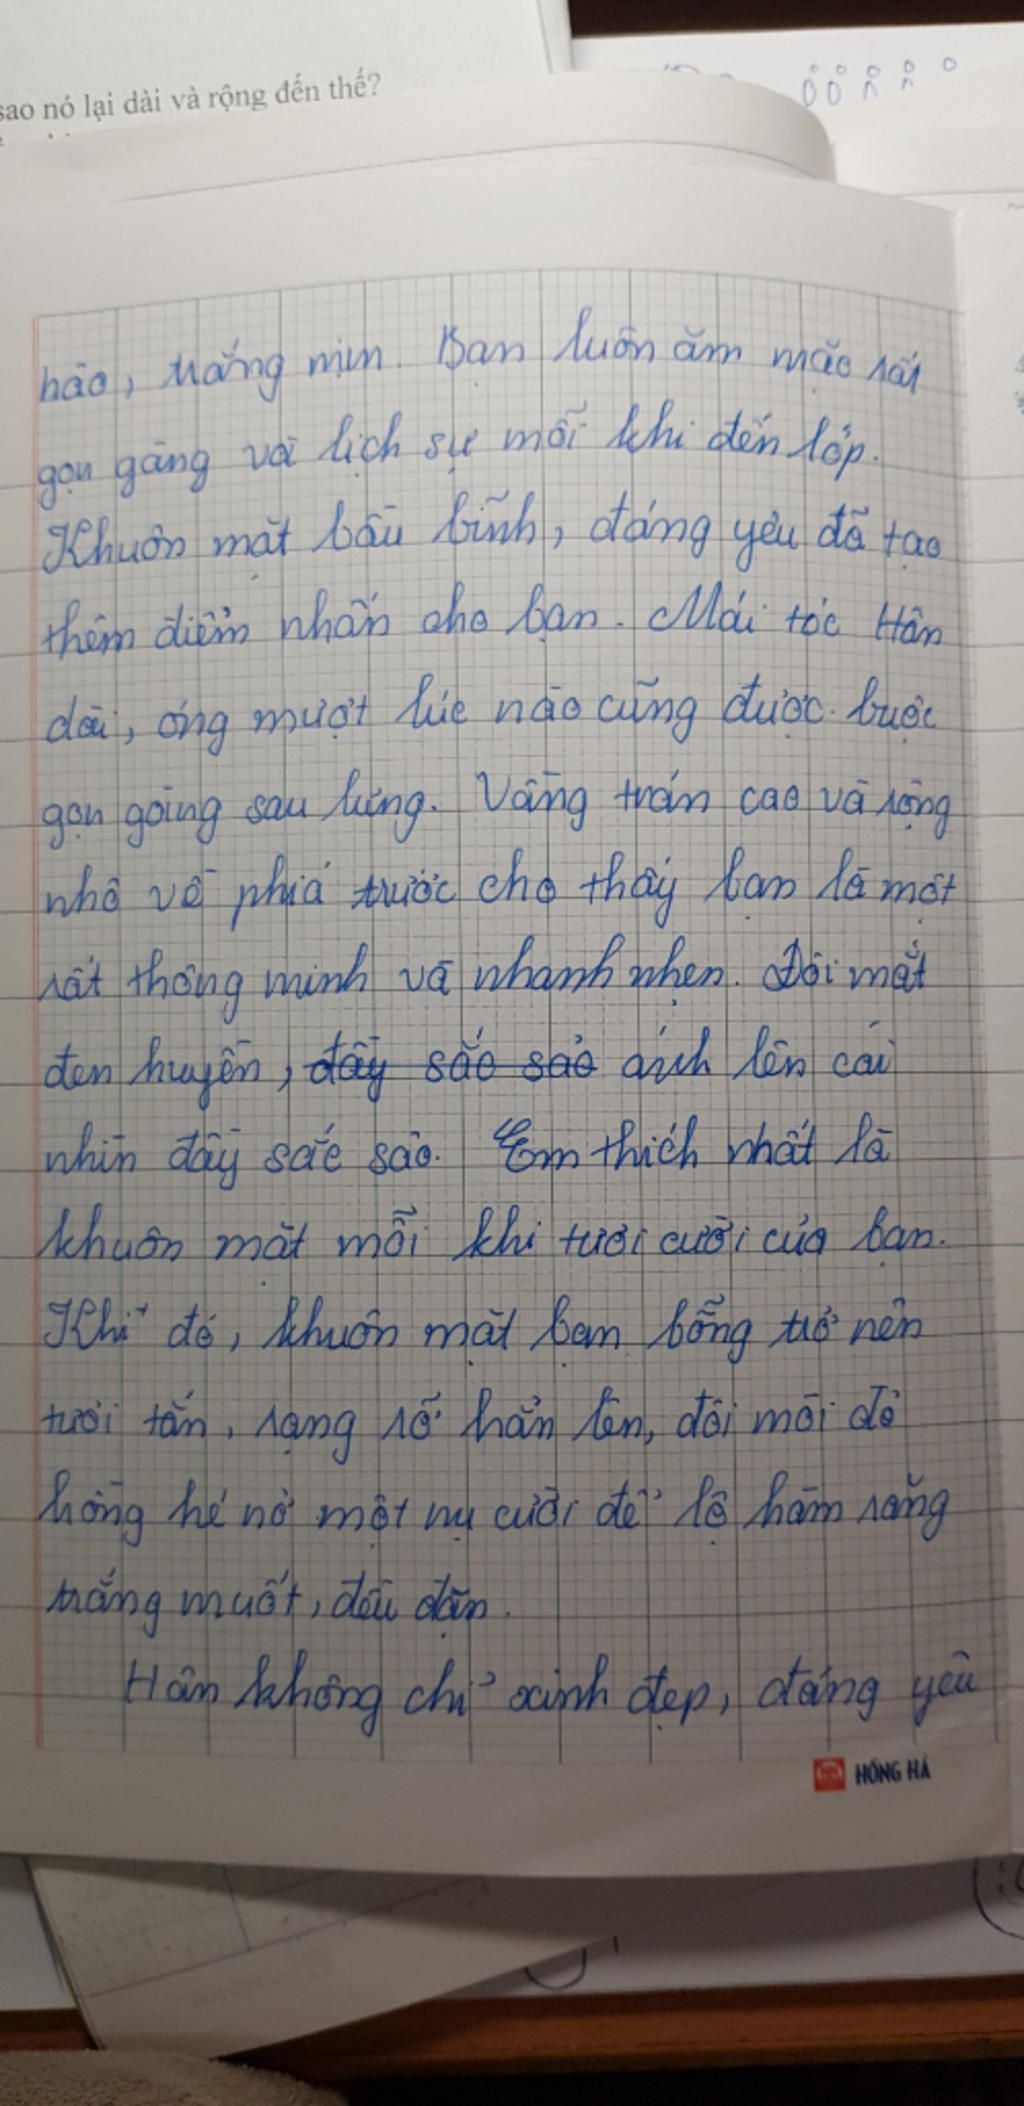 sao nó lại dài và rộng đến thế?
hảo, trắng mịn. Bạn luôn ăm mặc rất
gọn gàng và lịch sự mỗi khi đến lớp.
Khuôn mặt bầu bĩnh, đáng yêu đã tạo
thêm điểm nhấn cho bạn. Mái tóc Hân
dài, óng mượt lúc nào cũng được buộc
gọn gàng sau lưng. Vầng trán cao và rộng
nhô về phía trước cho thấy bạn là một
rất thông minh và nhanh nhẹn. Đôi mắt
đen huyền, đầy sắc sảo ánh lên cái
nhìn đầy sắc sảo. Em thích nhất là
khuôn mặt mỗi khi tươi cười của bạn.
Khi đó, khuôn mặt bạn bỗng trở nên
tươi tắn, rạng rỡ hẳn lên, đôi môi đỏ
hồng hé nở một nụ cười để lộ hàm răng
trắng muốt, đều đặn.
Hân không chỉ xinh đẹp, đáng yêu
HỒNG HÀ